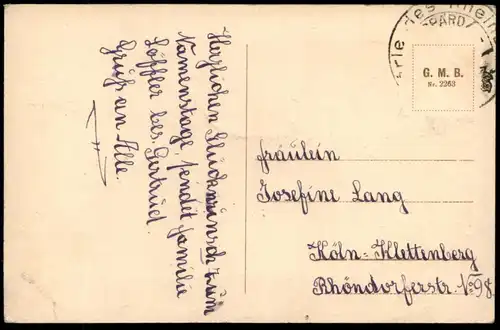 Herzlichen Glückwunsch zum
Namenstage, sendet familie
Löffler bes. Gertrud.
Gruß an Alle.
rie des Rhein
(GARD)
G. M. B.
Nr. 2263
fräulein
Josefine Lang
Köln-Klettenberg
Rhöndorferstr. No 98